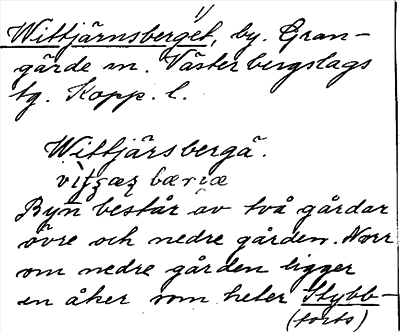 Wittjärnsberget, by. Gran-
gärde sn. Väster bergslags
tg. Kopp. l.
Wittjärsbergä.
Byn består av två gårdar
övre och nedre gården. Norr
om nedre gården ligger
en åker som heter Stybb-
(forts)